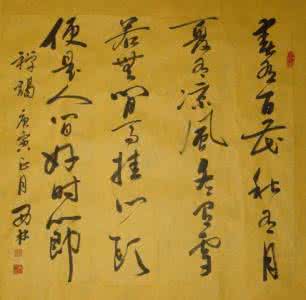 春有百花秋有月
夏有凉風冬有雪
若無閒事挂心頭
便是人間好時節
禪偈 庚寅正月